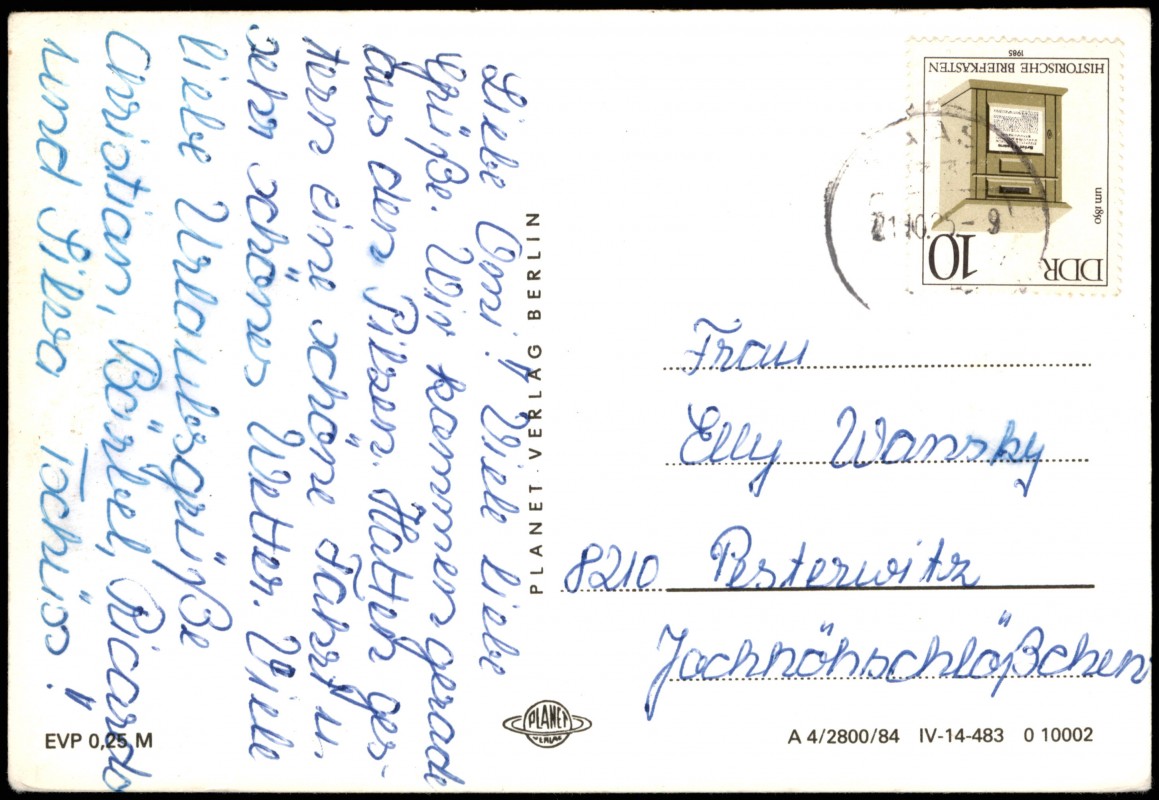 Liebe Omi! Viele liebe
Grüße. Wir kommen gerade
aus den Pilzen. Hatten ges-
tern eine schöne Fahrt u.
sehr schönes Wetter. Viele
liebe Urlaubsgrüße
Christian, Bärbel, Ricardo
und Silva Tschüs!
PLANET VERLAG BERLIN
HISTORISCHE BRIEFKASTEN
1985
um 1850
DDR 10
Frau
Elly Wansky
8210 Pesterwitz
Jochhöhschlößchen
EVP 0,25 M
PLANET
VERLAG
A 4/2800/84 IV-14-483 0 10002